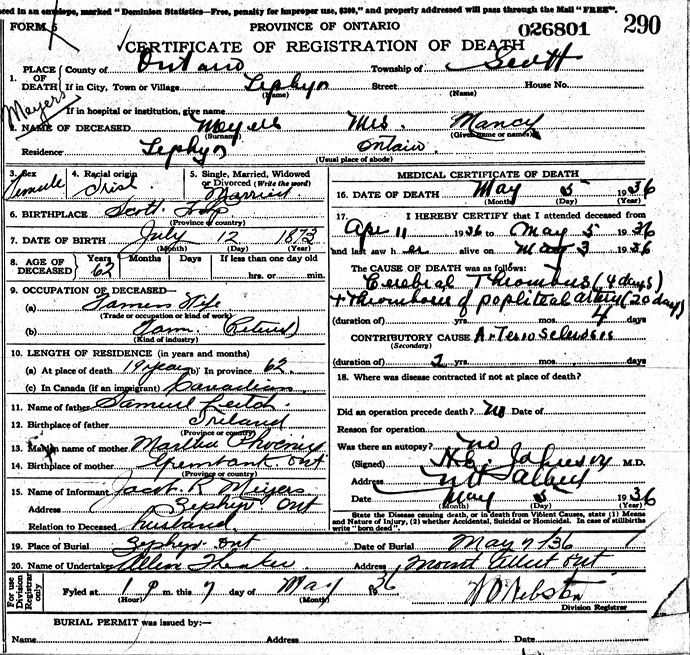 ed in an envelope, marked "Dominion Statistics—Free, penalty for improper use, $300," and properly addressed will pass through the Mail "FREE".
FORM 5 PROVINCE OF ONTARIO 026801 290
CERTIFICATE OF REGISTRATION OF DEATH
1. PLACE OF DEATH County of Ontario Township of Scott
If in City, Town or Village Zephyr (Name) Street (Name) House No.
If in hospital or institution, give name
Meyers
2. NAME OF DECEASED Meyers (Surname) Mrs. Nancy (Given name or names)
Residence Zephyr Ontario (Usual place of abode)
3. Sex Female 4. Racial origin Irish 5. Single, Married, Widowed or Divorced (Write the word) Married
6. BIRTHPLACE Scott Twp (Province or country)
7. DATE OF BIRTH July (Month) 12 (Day) 1873 (Year)
8. AGE OF DECEASED Years 62 Months Days If less than one day old hrs. or min.
9. OCCUPATION OF DECEASED—
(a) Farmers Wife (Trade or occupation or kind of work)
(b) Farm (Retired) (Kind of industry)
10. LENGTH OF RESIDENCE (in years and months)
(a) At place of death 19 years (b) In province 62
(c) In Canada (if an immigrant) Canadian
11. Name of father Samuel Leitch
12. Birthplace of father Ireland (Province or country)
13. Maiden name of mother Martha Phoenix
14. Birthplace of mother Ont (Province or country)
15. Name of Informant Jacob R Meyers
Address Zephyr Ont
Relation to Deceased husband
MEDICAL CERTIFICATE OF DEATH
16. DATE OF DEATH May (Month) 5 (Day) 1936 (Year)
17. I HEREBY CERTIFY that I attended deceased from
Apr 11 1936 to May 5 1936
and last saw her alive on May 3 1936
The CAUSE OF DEATH was as follows:
Cerebral Thrombus (4 days)
+ Thrombus of popliteal artery (20 days)
(duration of) yrs. mos. 4 days
CONTRIBUTORY CAUSE Arteriosclerosis
(Secondary)
(duration of) 2 yrs. mos. days
18. Where was disease contracted if not at place of death?
Did an operation precede death? No Date of
Reason for operation
Was there an autopsy? no
(Signed) H.C. Johnson M.D.
Address Mt Albert
Date May (Month) 5 (Day) 1936 (Year)
State the Disease causing death, or in death from Violent Causes, state (1) Means and Nature of Injury, (2) whether Accidental, Suicidal or Homicidal. In case of stillbirths write "born dead".
19. Place of Burial Zephyr Ont Date of Burial May 7 '36
20. Name of Undertaker Address Mount Albert Ont
For use Division Registrar only Fyled at 1 p m. this 7 day of May 36
(Hour) (Month) Division Registrar
BURIAL PERMIT was issued by:—
Name Address Date